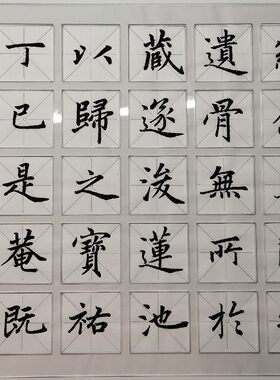 遺骨無所於
藏遂浚蓮池
以歸之寶祐
丁已是菴既